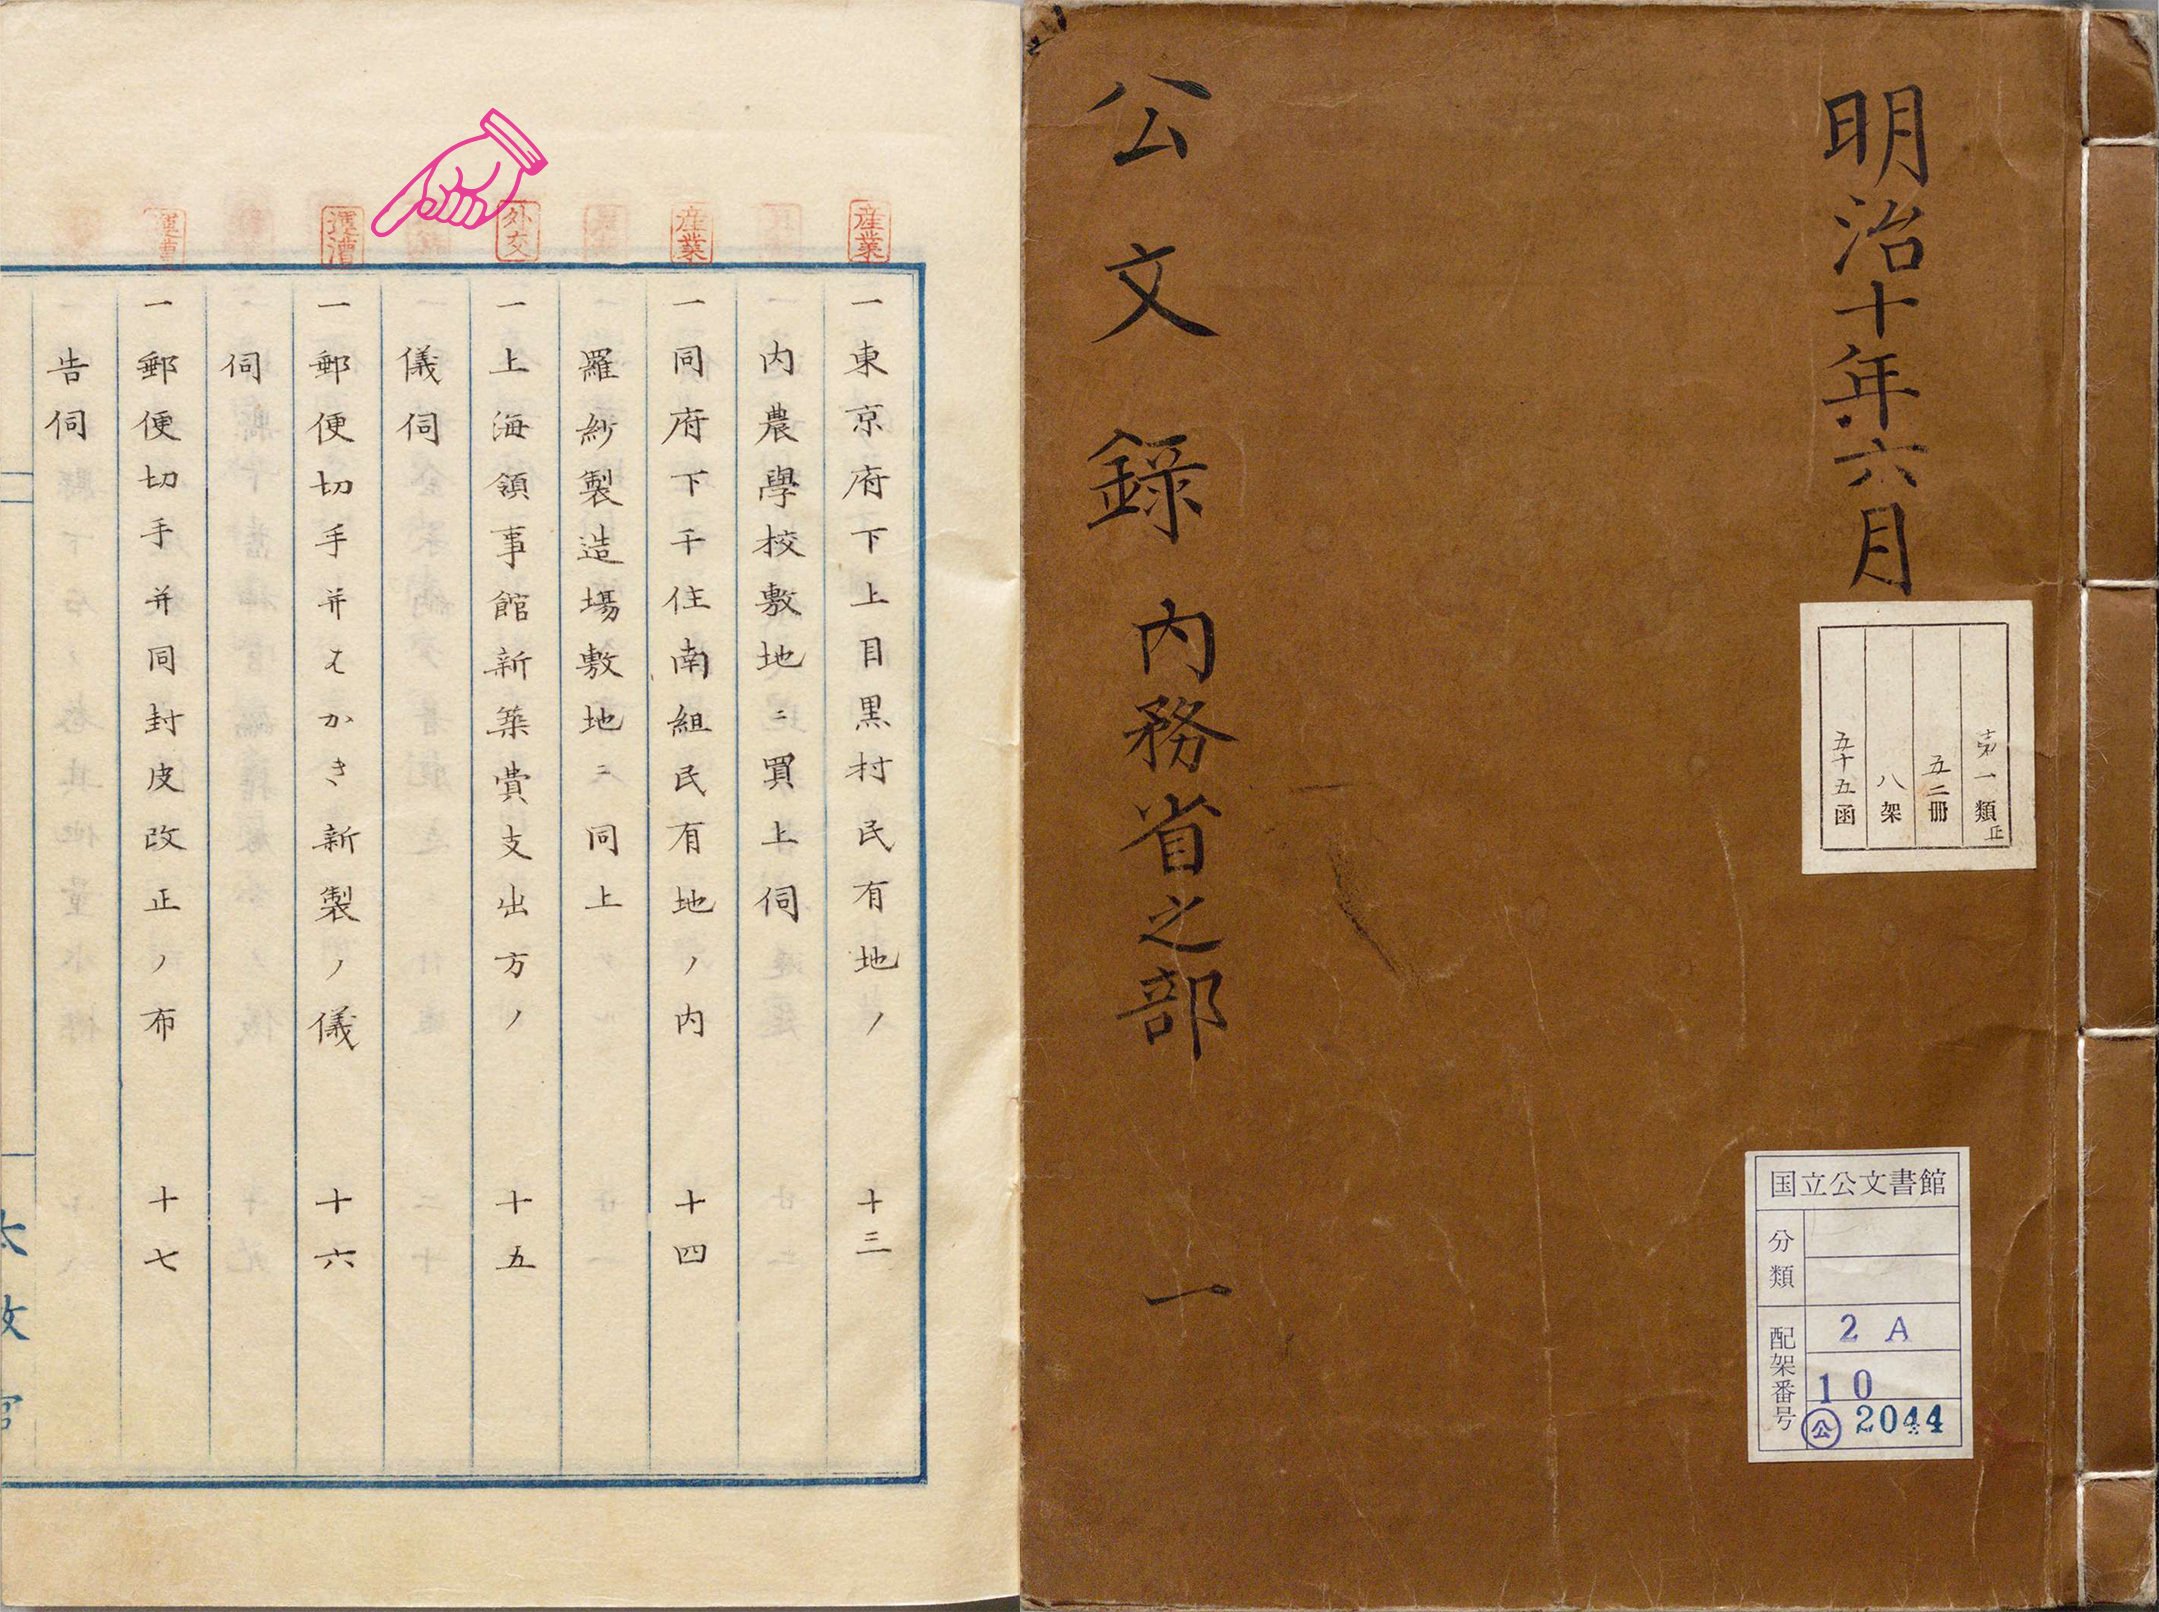 明治十年六月
第一類 正
五二冊
八架
五十五函
国立公文書館
分類
配架番号
2 A
10
公 2044
公文録 内務省之部 一
産業
一東京府下上目黒村民有地ノ 十三
内農學校敷地ニ買上伺
産業
一同府下千住南組民有地ノ内 十四
羅紗製造場敷地ニ同上
外交
一上海領事館新築費支出方ノ 十五
儀伺
運漕
一郵便切手并はかき新製ノ儀 十六
伺
運漕
一郵便切手并同封皮改正ノ布 十七
告伺